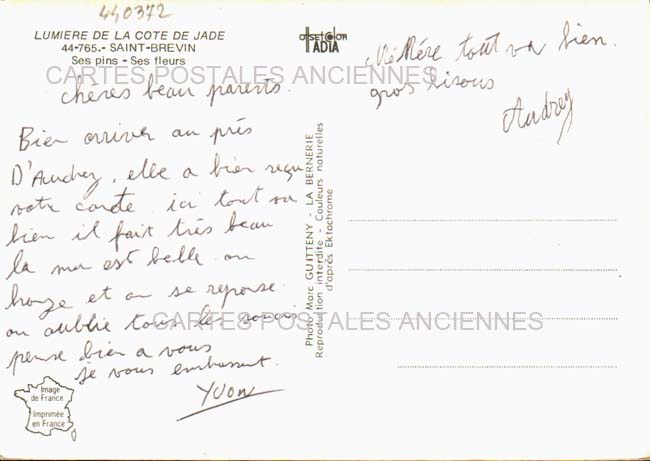 440372
LUMIERE DE LA COTE DE JADE
44-765.- SAINT-BREVIN
Ses pins - Ses fleurs
offset color
IADIA
CARTES POSTALES ANCIENNES
chères beau parents.
Bien arriver au près
D'Audrey, elle a bien reçu
votre carte ici tout va
bien il fait très beau
la mer est belle on
bronze et on se repose.
on oublie tous les soucis
pense bien a vous
je vous embrassent.
Yvon
Mère tout va bien.
gros bisous
Audrey
Photo Marc GUITTENY - LA BERNERIE
Reproduction interdite - Couleurs naturelles
d'après Ektachrome
CARTES POSTALES ANCIENNES
Image
de France
Imprimée
en France